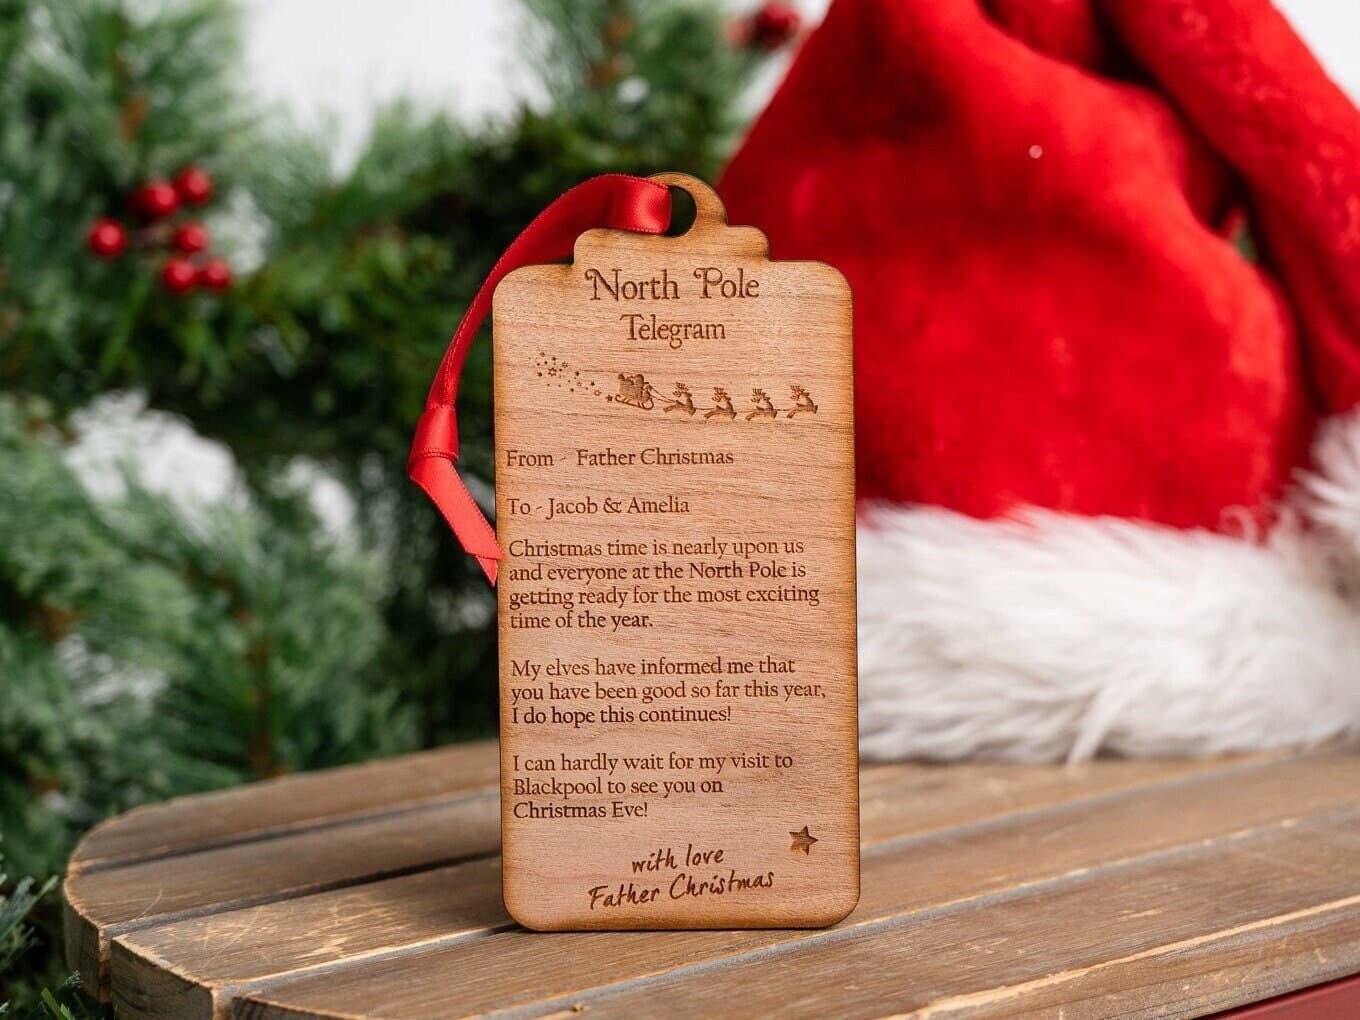 North Pole
Telegram
From - Father Christmas
To - Jacob & Amelia
Christmas time is nearly upon us
and everyone at the North Pole is
getting ready for the most exciting
time of the year.
My elves have informed me that
you have been good so far this year,
I do hope this continues!
I can hardly wait for my visit to
Blackpool to see you on
Christmas Eve!
with love
Father Christmas